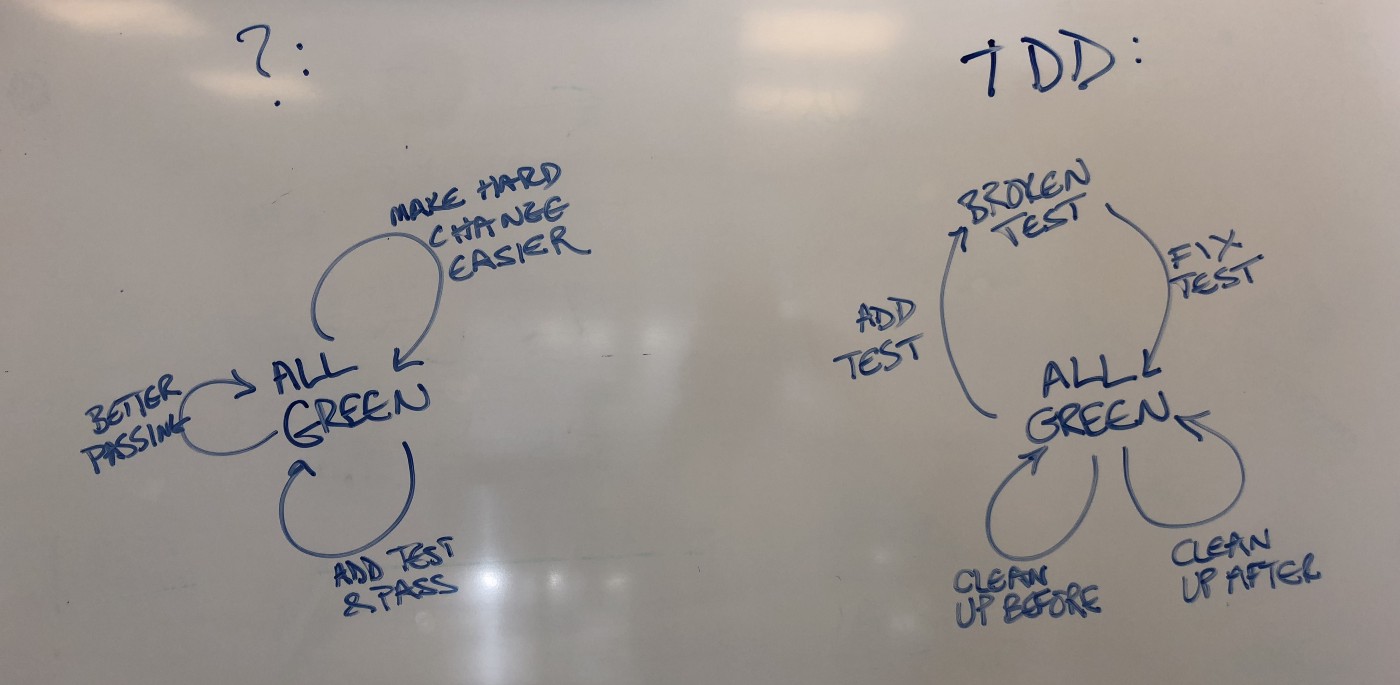 ?:
MAKE HARD
CHANGE
EASIER
BETTER
PASSING
ALL
GREEN
ADD TEST
& PASS
TDD:
BROKEN
TEST
FIX
TEST
ADD
TEST
ALL
GREEN
CLEAN
UP BEFORE
CLEAN
UP AFTER